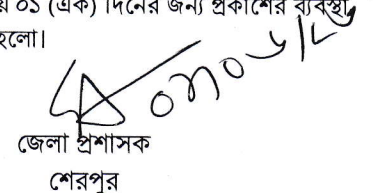 ০১ (এক) দিনের জন্য প্রকাশের ব্যবস্থা
হলো।
জেলা প্রশাসক
শেরপুর